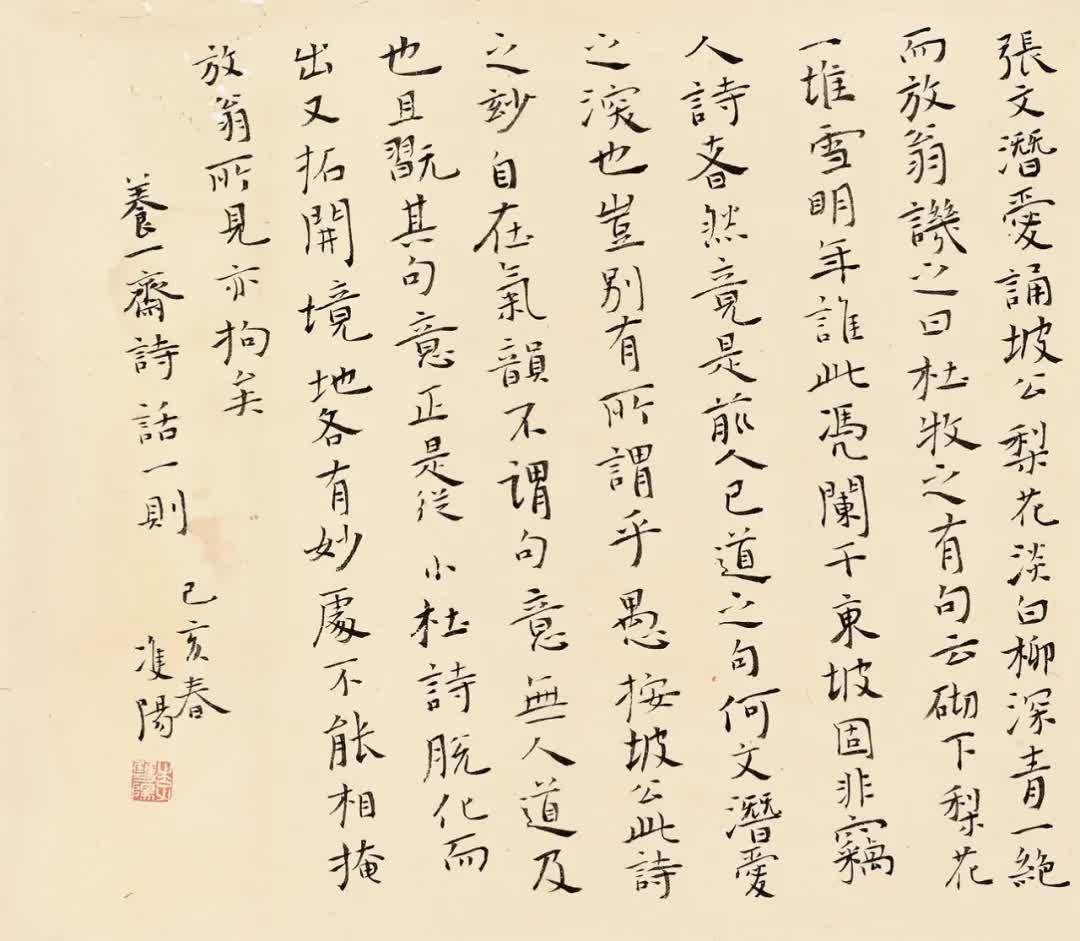 張文潛愛誦坡公梨花淡白柳深青一絕
而放翁譏之曰杜牧之有句云砌下梨花
一堆雪明年誰此憑闌干東坡固非竊
人詩者然竟是前人已道之句何文潛愛
之深也豈別有所謂乎愚按坡公此詩
之妙自在氣韻不謂句意無人道及
也且翫其句意正是從小杜詩脫化而
出又拓開境地各有妙處不能相掩
放翁所見亦拘矣
養一齋詩話一則
己亥春
準陽